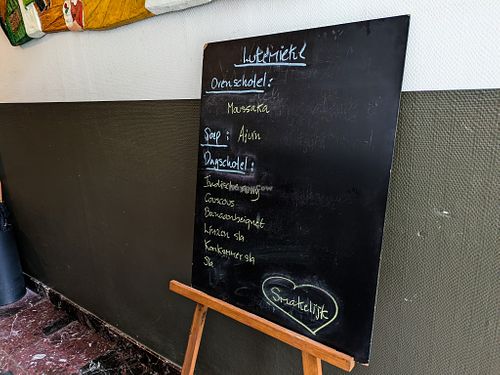 Lutemiekl
Ovenschotel:
Moussaka
Soep: Ajuin
Dagschotel:
Indische curry
Couscous
Banaanbeignet
Linzen sla
Komkommer sla
Sla
Smakelijk